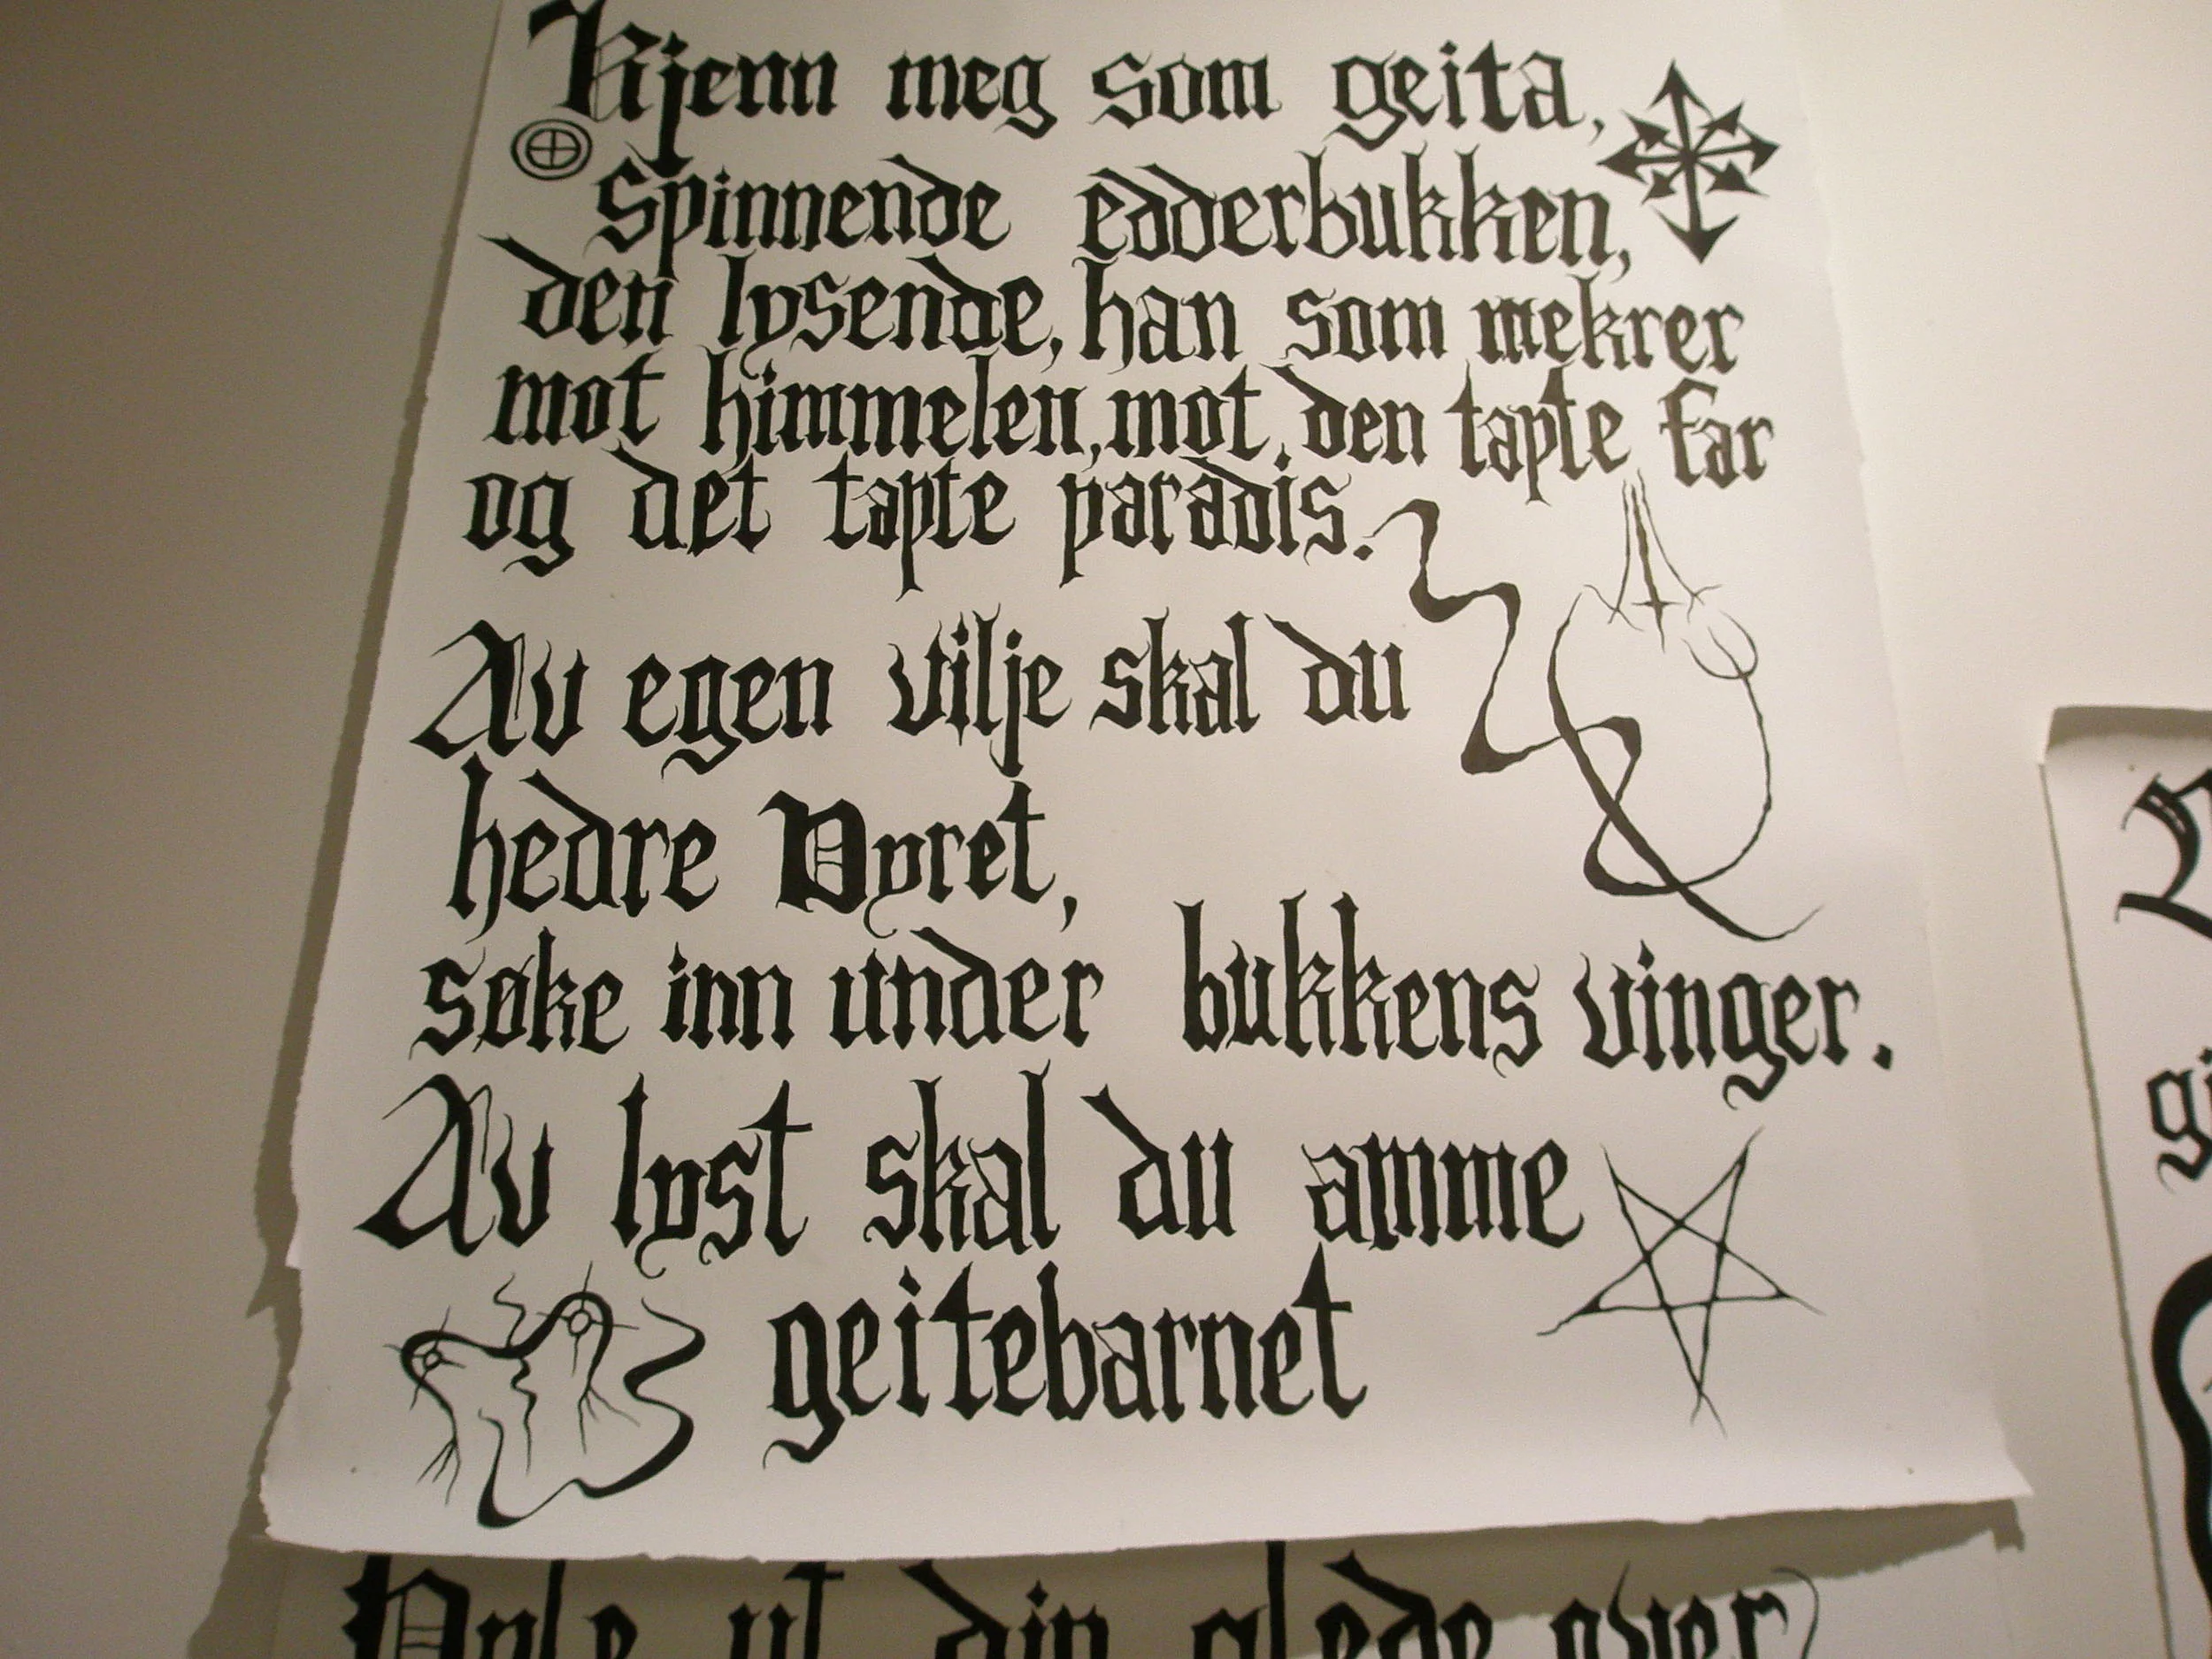 Kjenn meg som geita,
Spinnende edderbukken,
den lysende, han som mekrer
mot himmelen, mot den tapte far
og det tapte paradis.
Av egen vilje skal du
hedre Dyret,
søke inn under bukkens vinger.
Av lyst skal du amme
geitebarnet
ut din glede over